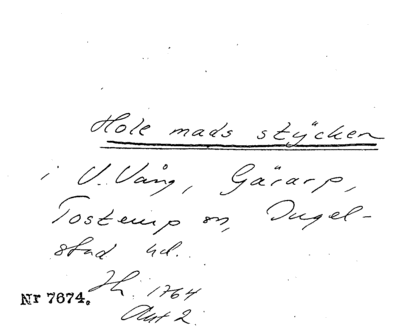 Hole mads stÿcken
i V. Vång, Gärarp,
Tosterup sn, Ingel-
stad hd.
Sk. 1764
Akt 2.
Nr 7674.